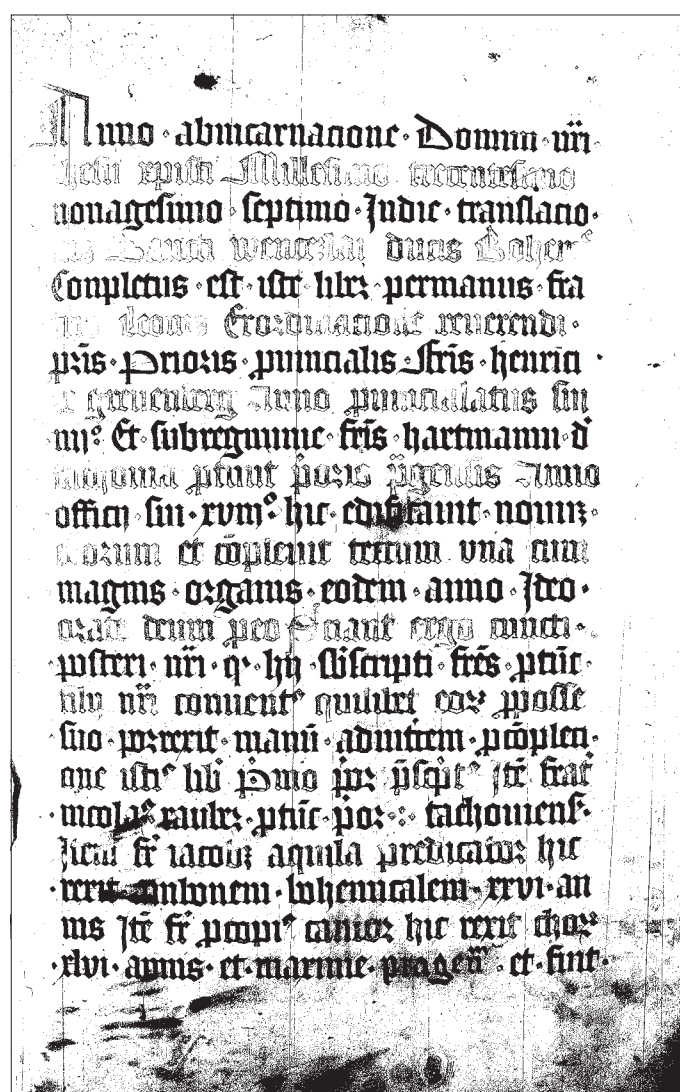 Anno · abincarnacione · Domini · nr̄i ·
ihesu xp̄isti Millesimo trecentesimo
nonagesimo · septimo · Indie · translacio ·
nis Sancti wenceslai ducis Bohem
Conpletus · est · iste · liber · permanus · fra
tris Exordinacione reuerendi ·
pr̄is · Prioris · puincialis · Fr̄is · henrici ·
Anno puincialatus sui
iiijº Et · subregimine · fr̄is · hartmanni · d
pōris Anno
officij · sui · xvmº · hic · edificauit · nouum ·
et cōpleuit tectum vna cum
magnis · organis · eodem · anno · Ideo ·
orate deum peo ergo cuncti ·
posteri · nr̄i · q · hij · sb̄scripti · fr̄es · ptūc ·
filij nr̄i conuent quilibet eor pposse
suo · porrexit · manū · adiutricem · pcōpleci ·
one isti libi pmo por pscpt Itē frat
nicola · ptūc · por · tachouiens ·
fr̄ iacob aquila predicator hic
rexit · anbonem · bohemicalem · xxvi · an
nis Itē fr̄ pcopi cantor hic rexit chor
xlvi · annis · et · maxime · pragen · et · sint ·